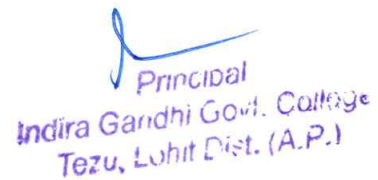 Principal
Indira Gandhi Govt. College
Tezu, Lohit Dist. (A.P.)